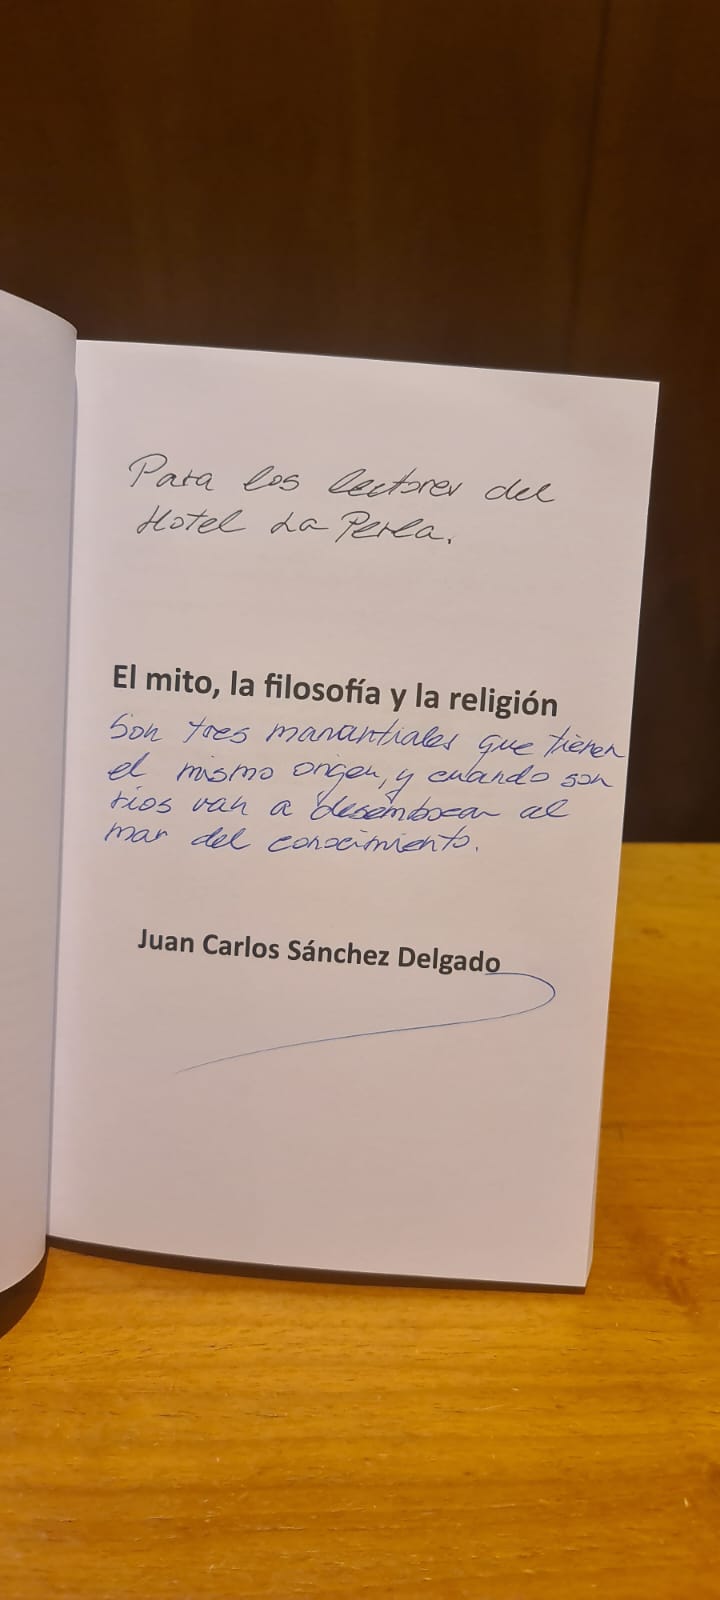 Para los lectores del
Hotel La Perla.
El mito, la filosofía y la religión
Son tres manantiales que tienen
el mismo origen, y cuando son
ríos van a desembocar al
mar del conocimiento.
Juan Carlos Sánchez Delgado